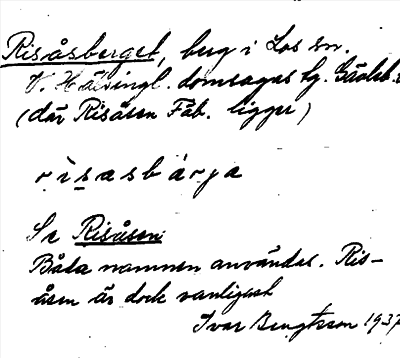 Risåsberget, berg i Los sn.
V. Hälsingl. domsagas tg. Gävleb.
(där Risåsen Fåb. ligger)
rìsasbárja
Se Risåsen
Båda namnen användas. Ris-
åsen är dock vanligast
Ivar Bengtsson 1937